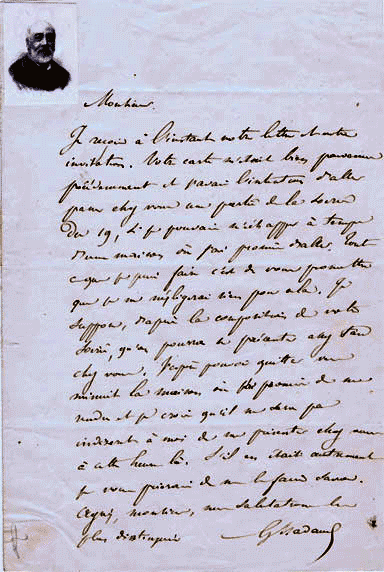 Monsieur.
Je reçois à l'instant votre lettre et votre
invitation. Votre carte m'était bien parvenue
précédemment et j'avais l'intention d'aller
passer chez vous une partie de la soirée
du 19, si je pouvais m'échapper à temps
d'une maison où j'ai promis d'aller. Tout
ce que je puis faire c'est de vous promettre
que je ne négligerai rien pour cela. Je
suppose, d'après la composition de votre
soirée, qu'on pourra se présenter assez tard
chez vous. J'espère pouvoir quitter vers
minuit la maison où j'ai promis de me
rendre et je crois qu'il ne sera pas
indiscret à moi de me présenter chez vous
à cette heure là. S'il en était autrement
je vous prierais de me le faire savoir.
Agréez, monsieur, mes salutations les
plus distinguées
G Nadaud